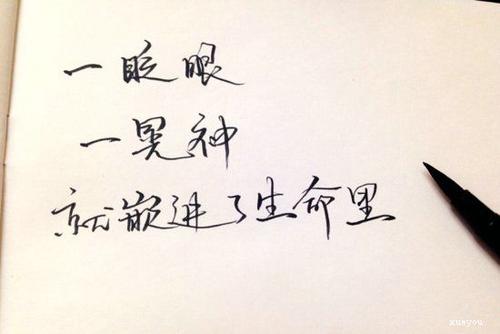 一眨眼
一晃神
就嵌进了生命里
xueyou